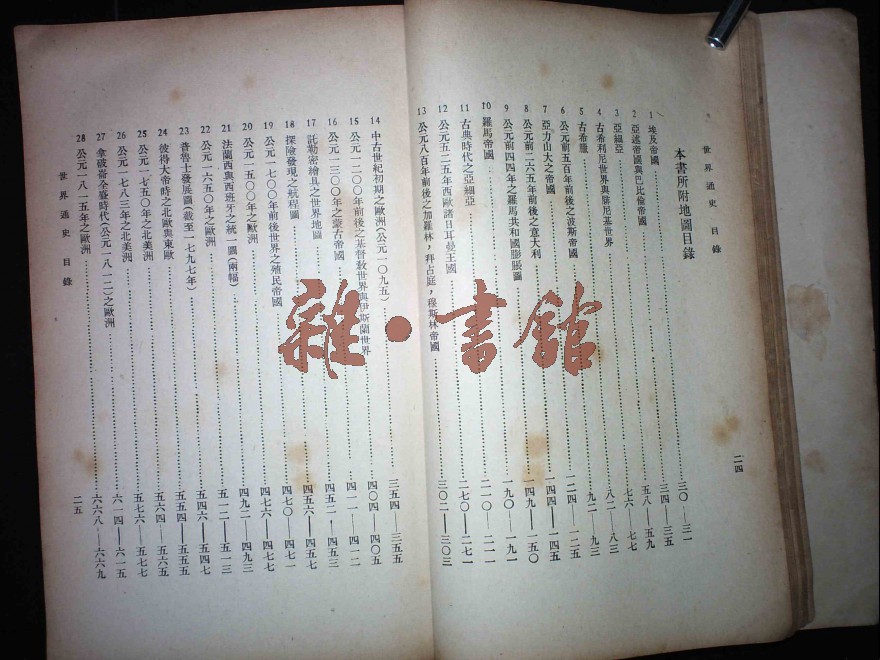 世界通史 目錄 二四
本書所附地圖目錄
1 埃及帝國……三〇—三一
2 亞述帝國與巴比倫帝國……三四—三五
3 亞細亞……五八—五九
4 古希利尼世界與腓尼基世界……七六—七七
5 古希臘……八二—八三
6 公元前五百年前後之波斯帝國……九二—九三
7 亞力山大之帝國……一二四—一二五
8 公元前二六五年前後之意大利……一四四—一四五
9 公元前四四年之羅馬共和國膨脹圖……一四九—一五〇
10 羅馬帝國……一九〇—一九一
11 古典時代之亞細亞……二一〇—二一一
12 公元五二五年西歐諸日耳曼王國……二七〇—二七一
13 公元八百年前後之加羅林，拜占庭，穆斯林帝國……三〇二—三〇三
14 中古世紀初期之歐洲（公元一〇九五）……三五四—三五五
15 公元一二〇〇年前後之基督教世界與伊斯蘭世界……四〇四—四〇五
16 公元一三〇〇年之蒙古帝國……四一一—四一二
17 託勒密繪具之世界地圖……四五二—四五三
18 探險發現之航程圖……四五六—四五七
19 公元一七〇〇年前後世界之殖民帝國……四七〇—四七一
20 公元一五〇〇年之歐洲……四七六—四七七
21 法蘭西與西班牙之統一圖（兩幅）……四九二—四九三
22 公元一六五〇年之歐洲……五一二—五一三
23 普魯士發展圖（截至一七九七年）……五四六—五四七
24 彼得大帝時之北歐與東歐……五五四—五五五
25 公元一七五〇年之北美洲……五六四—五六五
26 公元一七八三年之北美洲……五七六—五七七
27 拿破崙全盛時代（公元一八一二）之歐洲……六一四—六一五
28 公元一八一五年之歐洲……六六八—六六九
世界通史 目錄 二五
雜·書館